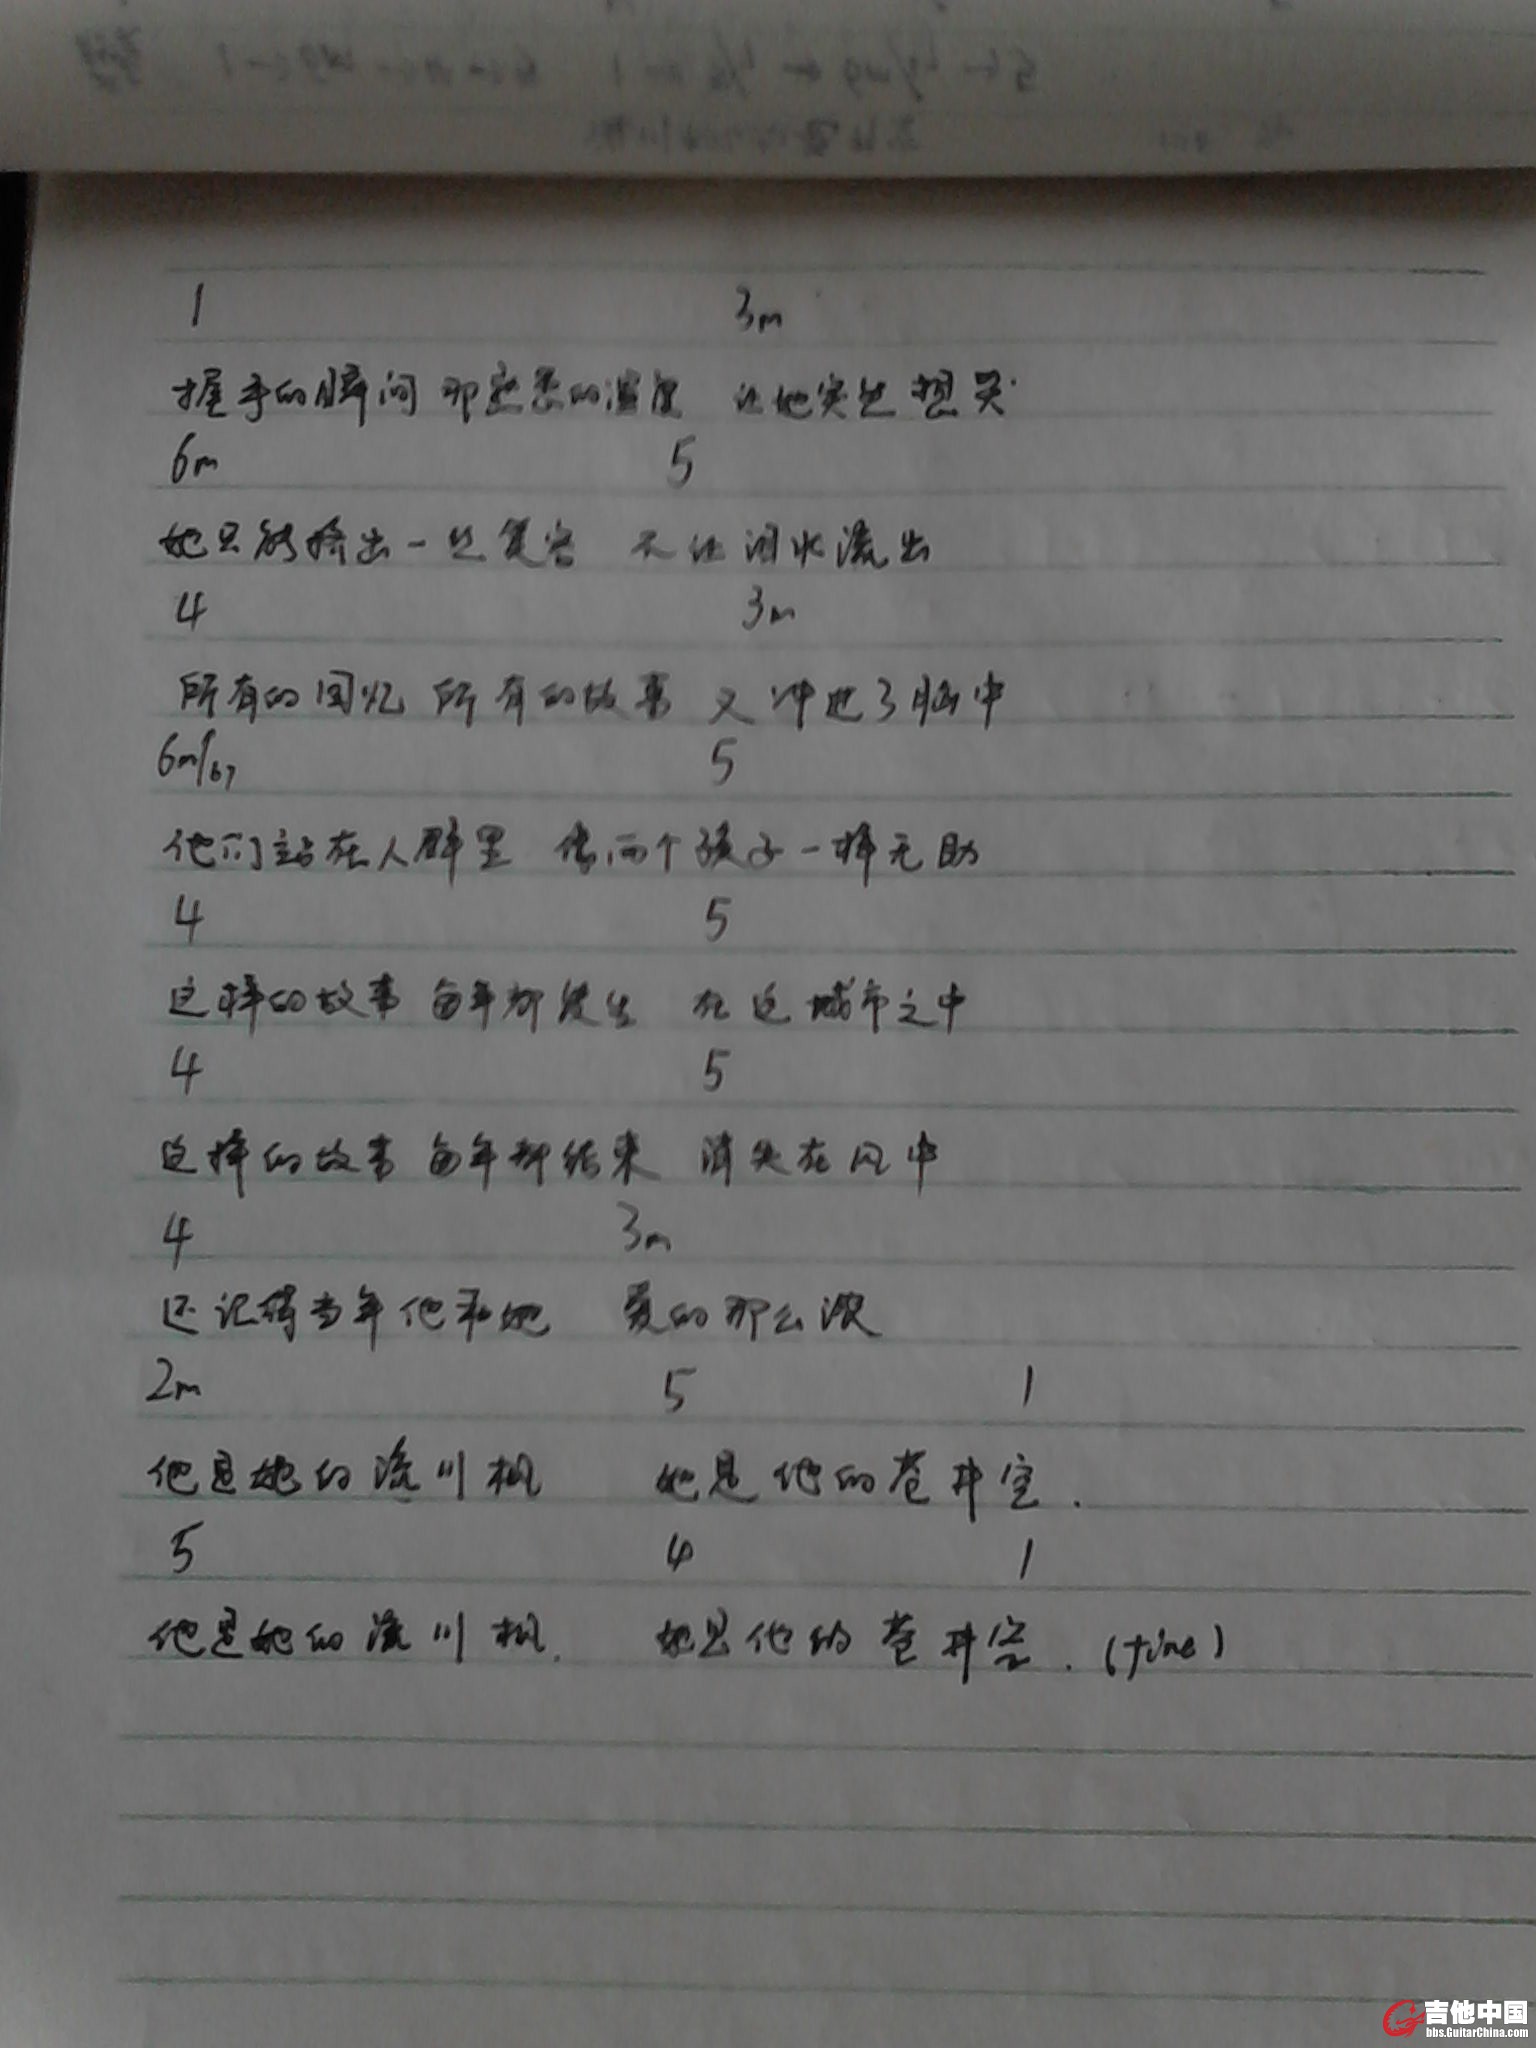 1 3m
握手的瞬间 那熟悉的温度 让他突然想哭
6m 5
她只能挤出一丝笑容 不让泪水流出
4 3m
所有的回忆 所有的故事 又冲进了脑中
6m/b7 5
他们站在人群里 像两个孩子一样无助
4 5
这样的故事 每年都发生 在这城市之中
4 5
这样的故事 每年都结束 消失在风中
4 3m
还记得当年他和她 爱的那么深
2m 5 1
他是她的流川枫 她是他的苍井空.
5 4 1
他是她的流川枫. 她是他的苍井空. (fine)
吉他中国
bbs.GuitarChina.com